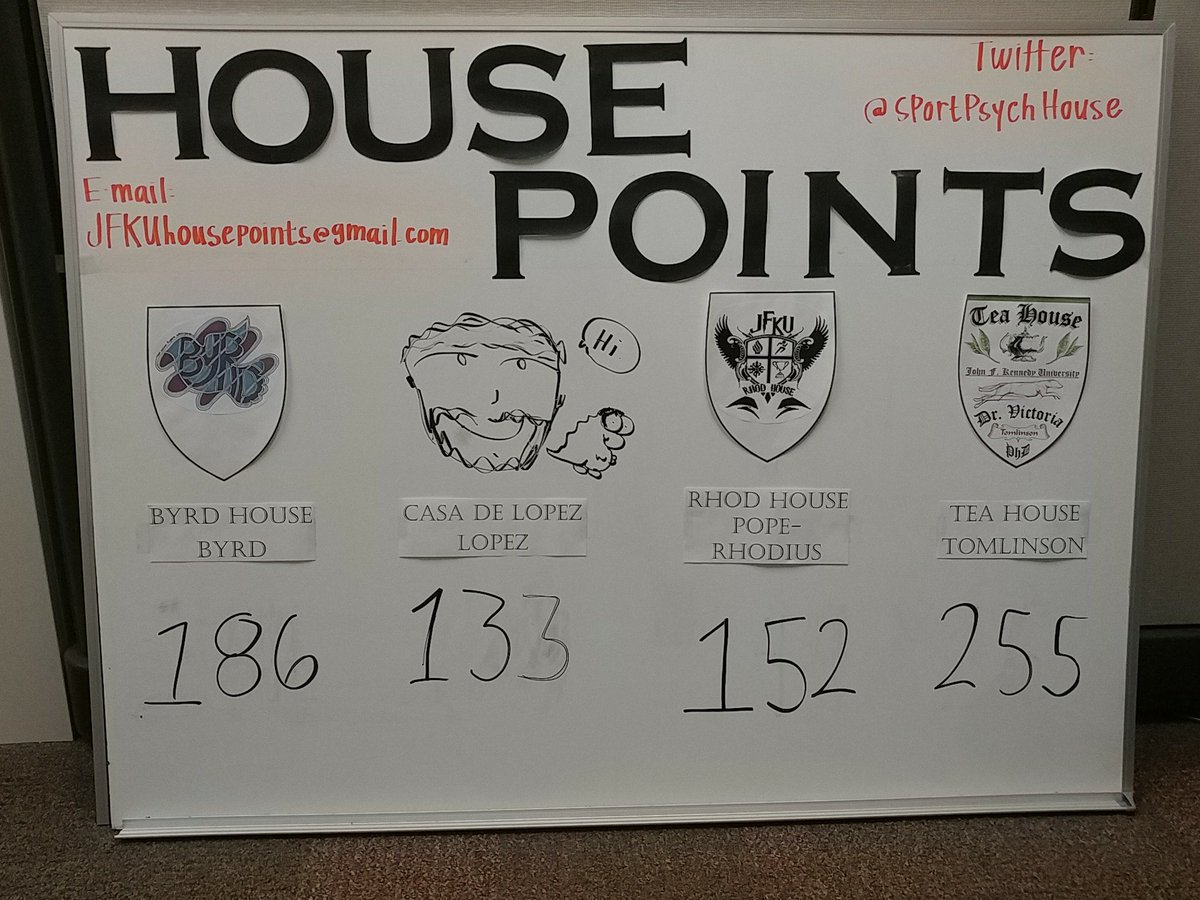 HOUSE
POINTS
Twitter-
@SportPsychHouse
E-mail-
JFKUhousepoints@gmail.com
BYRD
Hi
JFKU
RHOD HOUSE
Tea House
John F. Kennedy University
Dr. Victoria
Tomlinson
PhD
BYRD HOUSE
BYRD
CASA DE LOPEZ
LOPEZ
RHOD HOUSE
POPE-
RHODIUS
TEA HOUSE
TOMLINSON
186
133
152
255